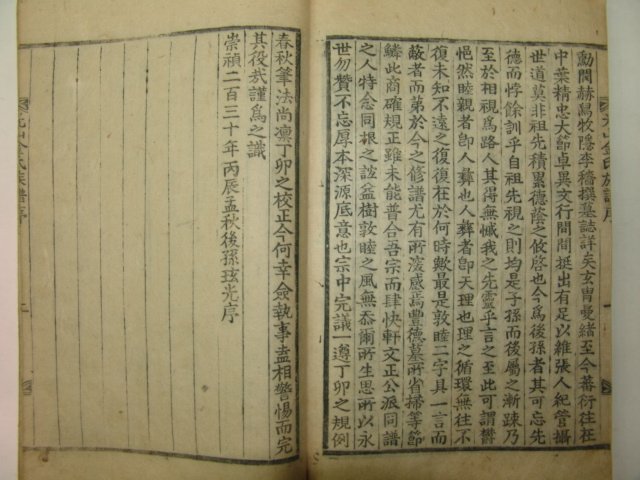 勳閥赫舃牧隱李穡撰墓誌詳矣玄胄蔓緖至今蕃衍往在
中葉精忠大節卓異文行間間挺出有足以維張人紀管攝
世道莫非祖先積累德蔭之攸啓也今爲後孫者其可忘先
德而悖餘訓乎自祖先視之則均是子孫而後屬之漸踈乃
至於相視爲路人其得無憾我之先靈乎言之至此可謂欝
悒然睦親者卽人彛也人彛者卽天理也理之循環無往不
復未知不遠之復復在於何時歟最是敦睦二字具一言而
蔽者而弟於今之修譜尤有所深感焉豊德墓所省掃等節
鱗此商確規正雖未能普合吾宗而肆快軒文正公派同譜
之人特念同根之誼益樹敦睦之風無忝爾所生思所以永
世勿贊不忘厚本深源底意也宗中完議一遵丁卯之規例
春秋筆法尚凛丁卯之校正今何幸僉執事盍相警惕而完
其役哉謹爲之識
崇禎二百三十年丙辰孟秋後孫玹光序
光山金氏族譜序